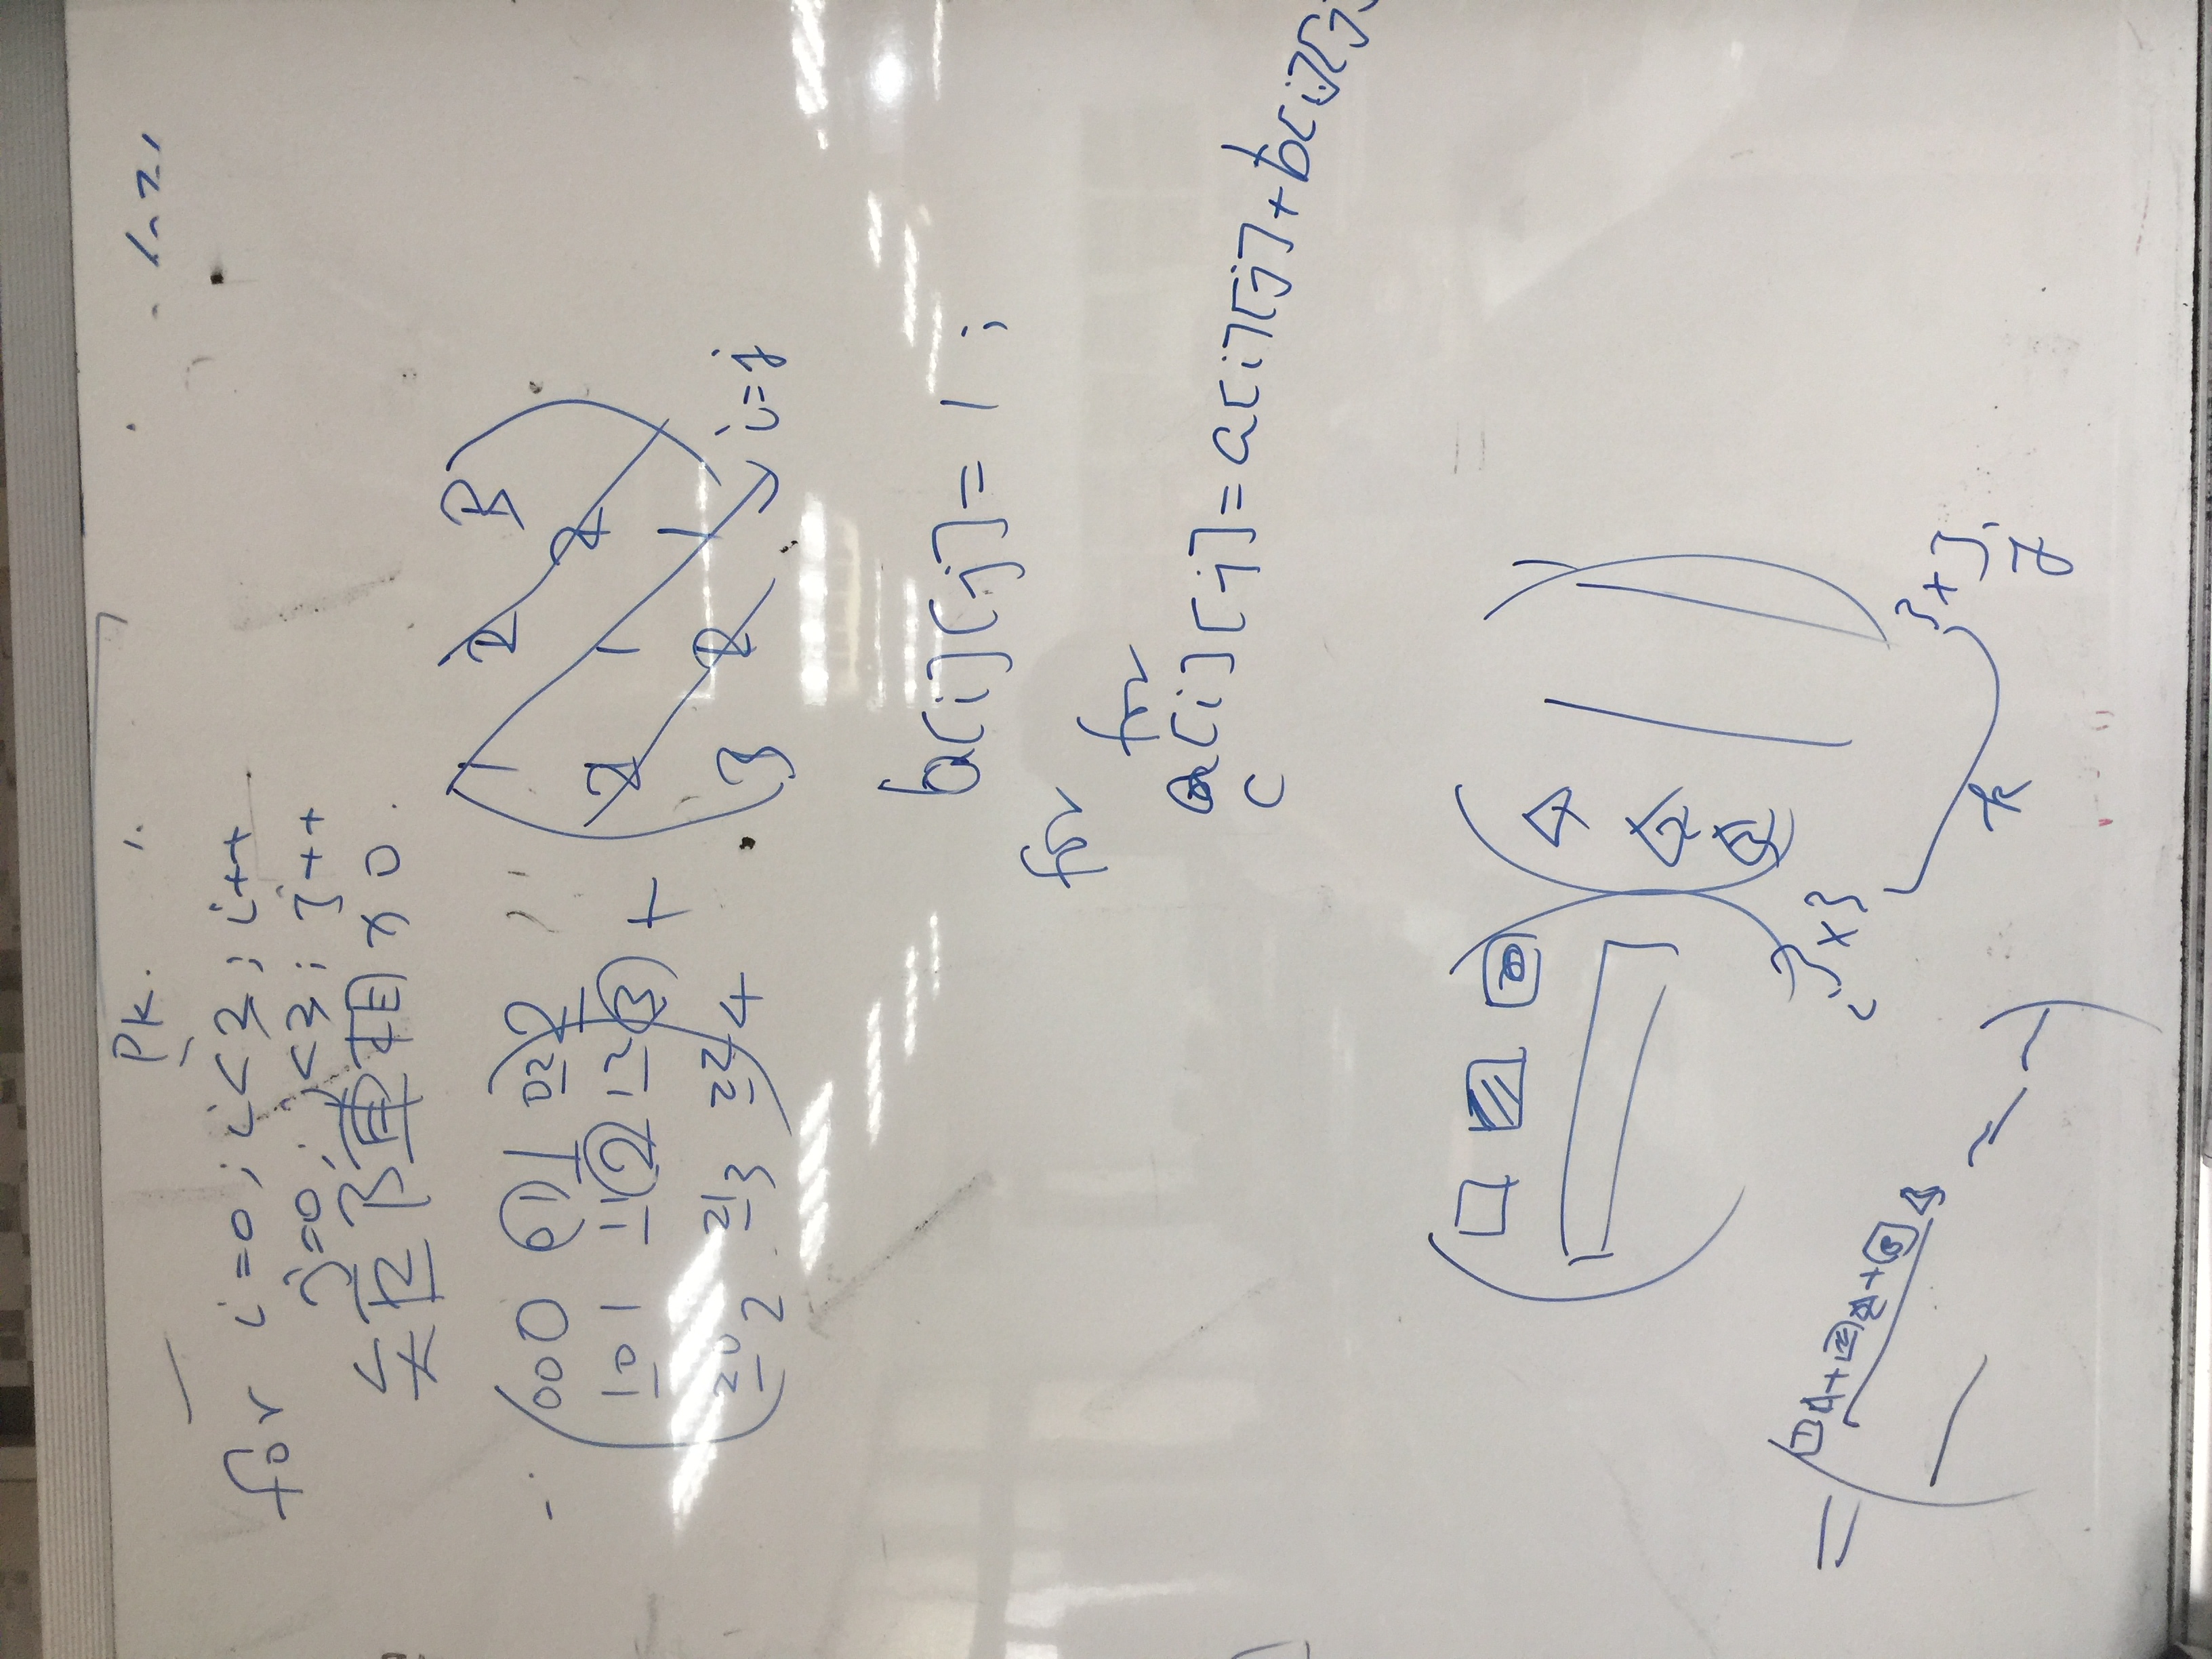 Pk.
for i=0; i<3; i++
j=0; j<3; j++
矩陣相加.
00 0 01 1 02 2
10 1 11 2 12 3
20 2 21 3 22 4
+
1 2 3
2 1 2
3 2 1
i=j
b[i][j]=1;
for
for
a[i][j]=a[i][j]+b[i][j]
c
1
2
3
i 3×3
3×3
k
j
= 1 1+2 2+3 3